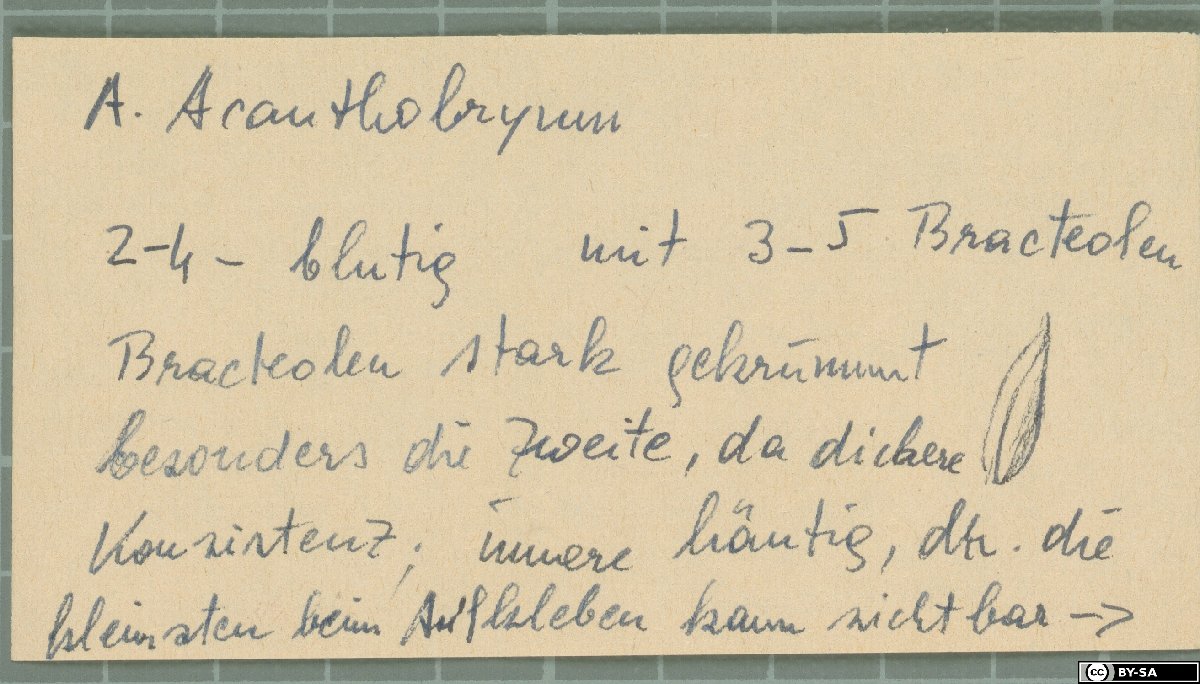 A. Acanthobryum
2-4- blutig mit 3-5 Bracteolen
Bracteolen stark gekrümmt
besonders die zweite, da dickere
Konsistenz; innere häutig, dh. die
kleinsten beim Aufkleben kaum sichtbar →
BY-SA